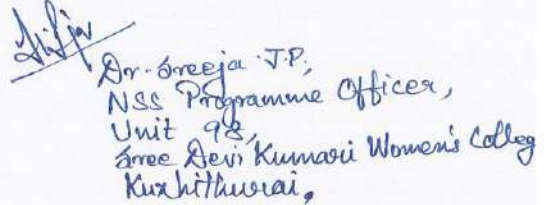 Dr. Sreeja J.P,
NSS Programme Officer,
Unit 98,
Sree Devi Kumari Women's Colleg
Kuzhithurai.